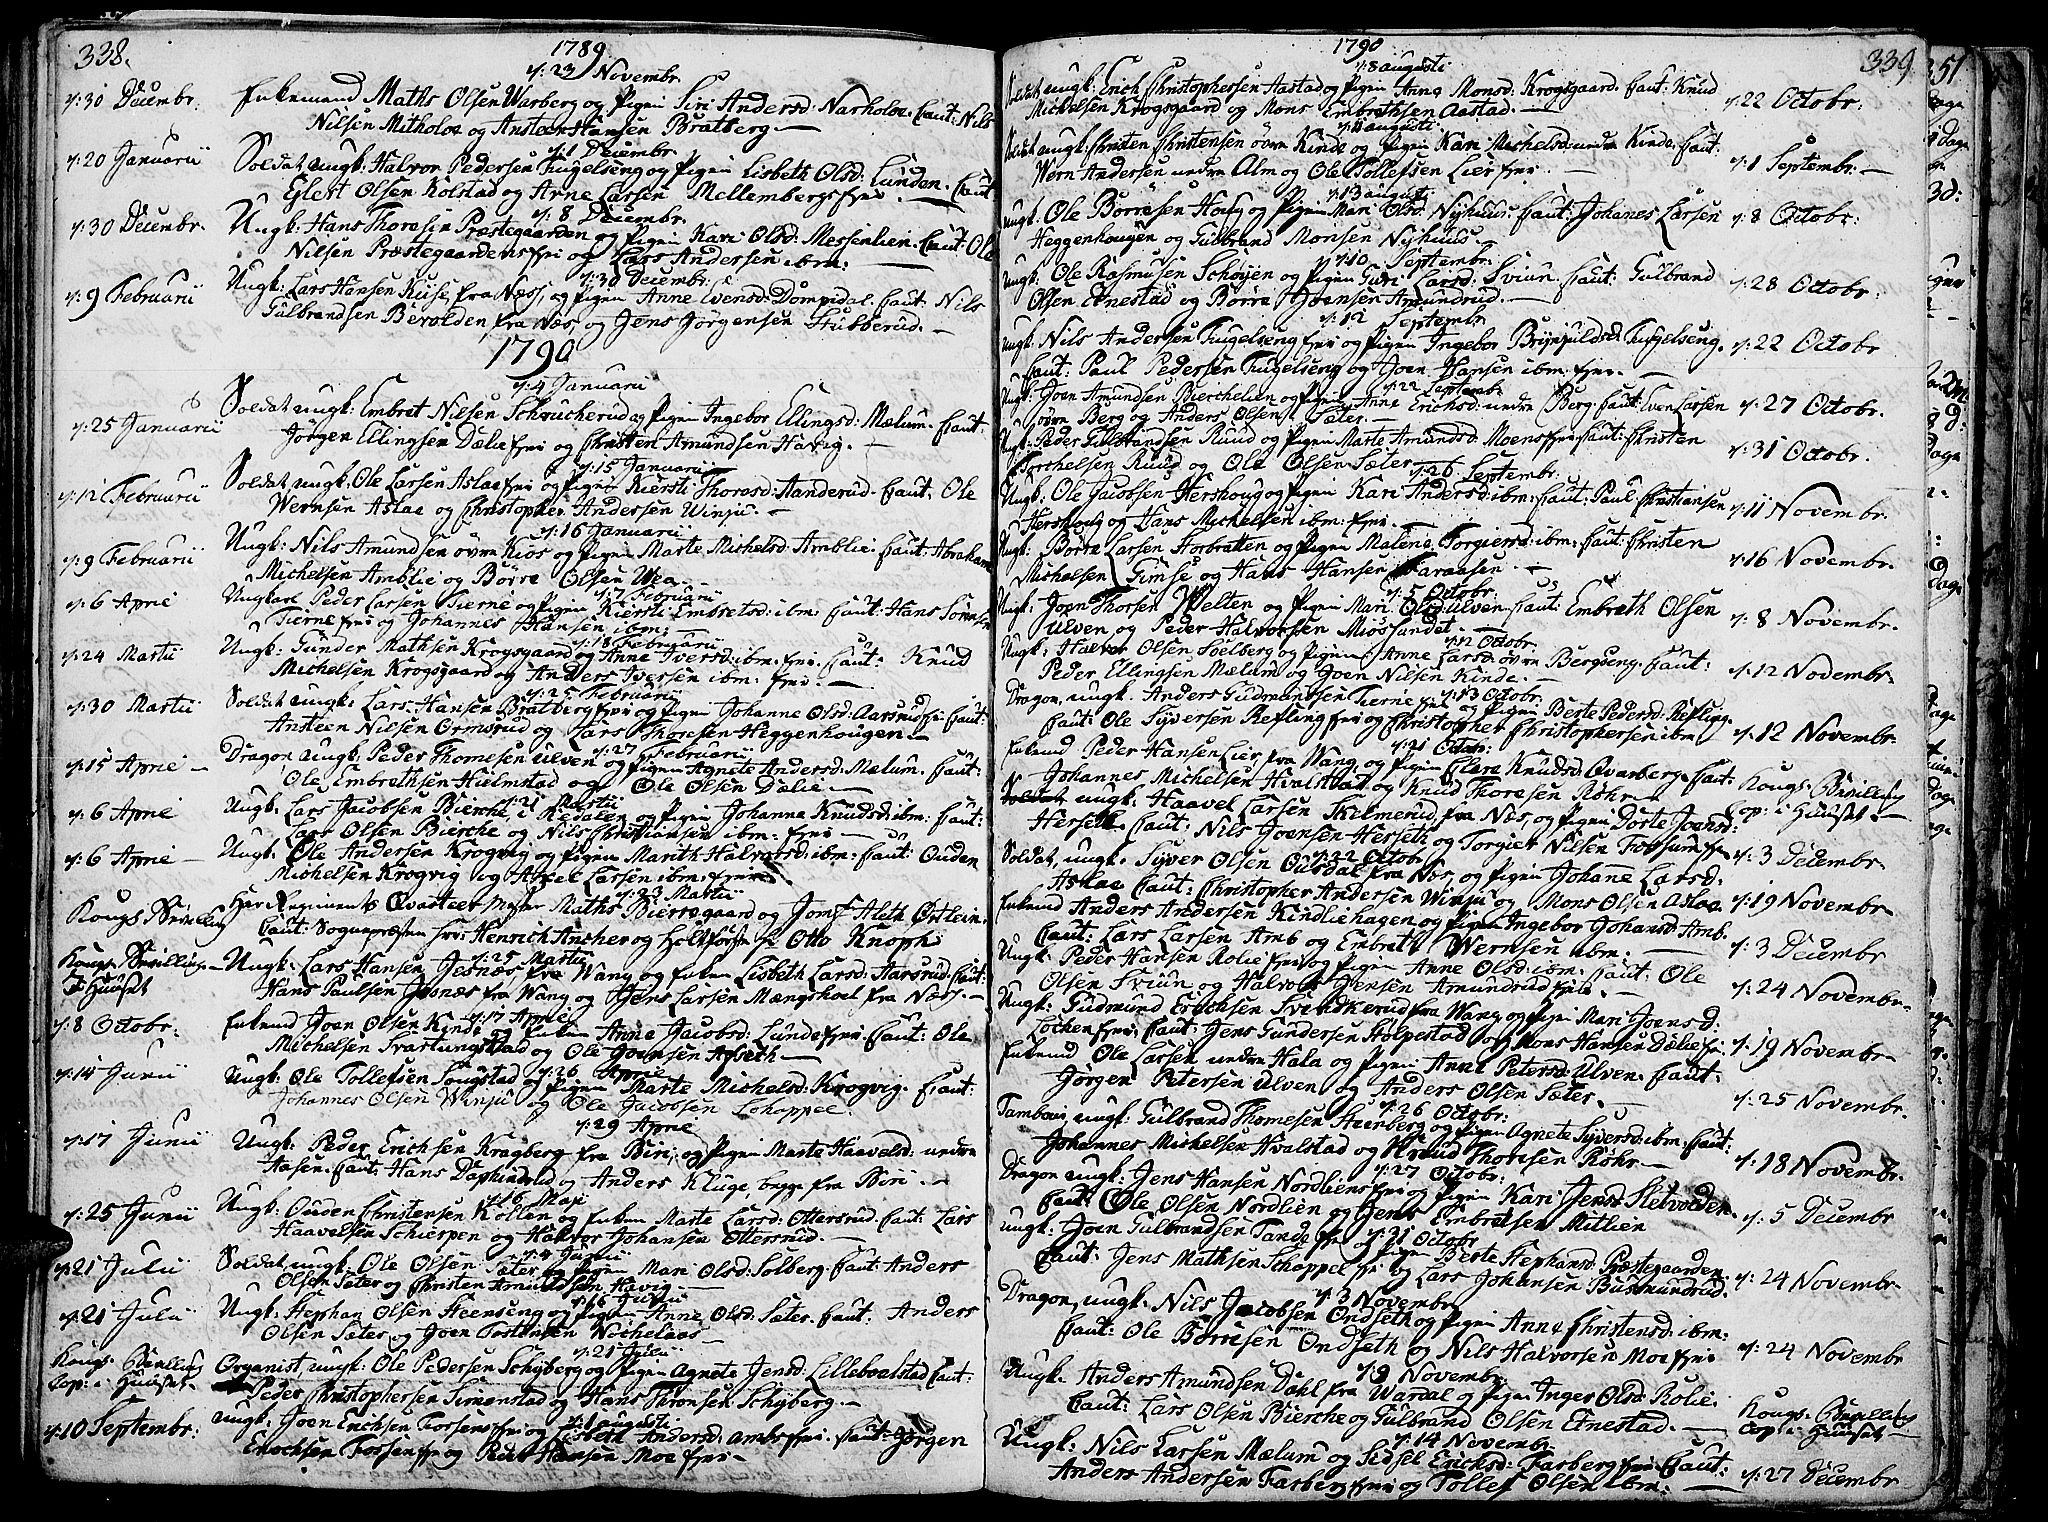 338.
1789
d: 23 Novembr.
d: 30 Decembr. Enkemand Maths Olsen Warberg og Pigen Siri Andersd: Narholoe. Caut: Nils
Nilsen Mitholoe og Ansteen Hansen Bratberg.—
d: 1 Decembr.
d: 20 Januarii Soldat ungk: Halvor Pedersen Fugelseng og Pigen Lisbeth Olsd: Lunden. Caut:
Eglert Olsen Kolstad og Arne Larsen Mellembergs Eyei.—
d: 8 Decembr.
d: 30 Decembr. Ungk: Hans Thoresen Præstegaarden og Pigen Kari Olsd: Messenlien. Caut: Ole
Nilsen Præstegaardens Eyei og Lars Andersen ibm:
d: 30 Decembr.
d: 9 Februarii Ungk: Lars Hansen Kiise, fra Næss, og Pigen Anne Evensd: Dompidal. Caut: Nils
Gulbrandsen Bevolden, fra Næs, og Jens Jörgensen Stubberud.—
1790
d: 4 Januarii
d: 25 Januarii Soldat ungk: Embret Nilsen Schrucherud og Pigen Ingebor Ellingsd: Mælum. Caut:
Jörgen Ellingsen Dælie Eyei og Christen Amundsen Havig.—
d: 15 Januarii
d: 12 Februarii Soldat ungk: Ole Larsen Aslae Eyei og Pigen Kiersti Thorsd: Sanderud. Caut: Ole
Wernsen Aslae og Christopher Andersen Winju.—
d: 16 Januarii
d: 9 Februarii Ungk: Nils Amundsen övre Kios og Pigen Marte Michelsd: Amblie. Caut: Abraham
Michelsen Amblie og Börre Olsen Wea.—
d: 7 Februarii
d: 6 April Ungkarl Peder Larsen Tierne og Pigen Kiersti Embretsd: ibm: Caut: Hans Sörensen
Tierne Eyei og Johannes Hansen ibm:—
d: 18 Februarii
d: 24 Martii Ungk: Gunder Mathsen Krogsgaard og Anne Iversd: ibm: Eyei. Caut: Knud
Michelsen Krogsgaard og Anders Iversen ibm: Eyei.—
d: 25 Februarii
d: 30 Martii Soldat ungk: Lars Hansen Bratberg Eyei og Pigen Johanne Olsd: Aarsrud Eyei Caut:
Ansteen Nilsen Ormsrud og Lars Thoresen Heggenhougen.—
d: 27 Februarii
d: 15 April — Dragon ungk: Peder Thomesen Ulven og Pigen Agnete Andersd: Mælum. Caut:
Ole Embrethsen Hielmstad og Ole Olsen Dælie.—
d: 21 Martii
d: 6 April Ungk: Lars Jacobsen Bierche, i Redalen og Pigen Johanne Knudsd: ibm: Caut:
Lars Olsen Bierche og Nils Christiansen ibm: Eyei—
d: 6 April — Ungk: Ole Andersen Krogvig og Pigen Marith Halvorsd: ibm: Caut: Ouden
Michelsen Krogvig og Axel Larsen ibm: Eyei.
d: 23 Martii
Kongs Bevilling Hær Regiments Qvarteer Mester Maths Bierregaard og Jomf: Aleth Ørtlein.
Caut: Sognepræsten Hr: Henrich Ancher og Holtförster Otto Knoph
d: 25 Martii
Kongs Bevilling Ungk: Lars Hansen Jesnæs fra Wang og Enken Lisbeth Larsd: Aarsrud. Caut:
I Huuset Hans Paulsen Jesnæs fra Wang og Jens Larsen Mængshoel fra Næs.—
d: 17 April
d: 8 Octobr: Enkemd Joen Olsen Kinde og Enken Anne Jacobsd: Lunde Eyei. Caut: Ole
Michelsen Svartungstad og Ole Joensen Afseth—
d: 26 April
d: 14 Junii Ungk: Ole Tollefsen Longstad og Pigen Marte Michelsd: Krogvig. Caut:
Johannes Olsen Winju og Ole Jacobsen Lohappel.
d: 29 April
d: 17 Junii Ungk: Peder Erichsen Kragberg fra Biri, og Pigen Marte Haavelsd: nedre
Aasen. Caut: Hans Daphinsrud og Anders Kluge, begge fra Biri.—
d: 16 Maji
d: 25 Junii Ungk: Ouden Christensen Kollen og Enken Marte Larsd: Ottersrud. Caut: Lars
Haavelsen Schierpen og Halvor Johansen Ottersrud.—
d: 4 Junii
d: 21 Julii Soldat, ungk: Ole Olsen Sæter og Pigen Mari Olsd: Solberg. Caut: Anders
Olsen Sæter og Christen Amundsen Havig.—
d: 21 Julii Ungk: Stephan Olsen Steenseng og Pigen Anne Olsd: Sæter. Caut: Anders
Olsen Sæter, og Joen Tostensen Nichelaas—
d: 21 Julii
Kongs Bevilling Organist, ungk: Ole Pedersen Schyberg og Pigen Agnete Jensd: Lilleboelstad Caut:
Cop: i Huuset.— Peder Christophersen Simenstad og Hans Thronsen Schyberg.—
d: 1 augusti
d: 10 Septembr: Ungk: Joen Erichsen Forsens Eyei og Lisbeth Andersd: Ambs Eyei. Caut: Jörgen
Enochsen Forsens Eyei og Peder Hansen Moe Eyei—
339
1790
d: 8 augusti
Soldat ungk: Erich Christophersen Aastad og Pigen Anne Monsd: Krogsgaard. Caut: Knud d: 22 Octobr:
Michelsen Krogsgaard og Mons Embrethsen Aastad.—
d: 11 augusti
Soldat ungk: Christen Christensen övre Kinde og Pigen Kari Michelsd: nedre Kinde. Caut: d: 1 Septembr:—
Wern Andersen nedre Alm og Ole Tollefsen Lier Eyei.—
d: 13 augusti
Ungk: Ole Börresen Houg og Pigen Mari Olsd: Nyhuus. Caut: Johanes Larsen d: 8 Octobr:
Heggenhougen og Gulbrand Monsen Nyhuus.
d: 10 Septembr:
Ungk: Ole Rasmusen Schöyen og Pigen Guri Larsd: Sviun. Caut: Gulbrand d: 28 Octobr:
Olsen Ernestad og Börre Joensen Amundrud.—
d: 12 Septembr
Ungk: Nils Andersen Fugelseng Eyei og Pigen Ingebor Brynjuldsd: Fugelseng. d: 22 Octobr
Caut: Paul Pedersen Fugelseng og Joen Hansen ibm: Eyei.—
d: 22 Septembr
Ungk: Joen Amundsen Bierchelien og Pigen Anne Erichsd: nedre Berg. Caut: Even Larsen d: 27 Octobr.
övre Berg og Anders Olsen Sæter.—
Ungk: Peder Gulbrandsen Ruud og Pigen Marte Amundsd: Moens Eyei Caut: Christen d: 31 Octobr.
Torchelsen Ruud og Ole Olsen Sæter—
d: 26 Septembr.
Ungk: Ole Jacobsen Hershoug og Pigen Kari Andersd: ibm: Caut: Paul Christiansen d: 11 Novembr.
Hershoug og Hans Michelsen ibm: Eyei.—
Ungk: Börre Larsen Storbratten og Pigen Malene Torgiersd: ibm: Caut: Christen d: 16 Novembr.
Michelsen Gimse og Hans Hansen Faraasen.—
d: 5 Octobr:
Ungk: Joen Thorsen Welten og Pigen Mari Olsd: Ulven Caut: Embreth Olsen d: 8 Novembr.
Ulven og Peder Halvorsen Miössundet.—
d: 12 Octobr
Ungk: Halvor Olsen Soelberg og Pigen Anne Larsd: övre Bergseng. Caut: d: 12 Novembr.
Peder Ellingsen Mælum og Joen Nilsen Kinde.—
d: 13 Octobr
Dragon, ungk. Anders Gudmundsen Tierne Eyei og Pigen Berte Pedersd: Refling d: 12 Novembr.
Caut: Ole Syversen Refling Eyei og Christopher Christophersen ibm
d: 21 Octobr:
Enkemd Peder Hansen Lier, fra Wang, og Pigen Clara Knudsd: Qvarberg. Caut: Kongs Bevilling
Johannes Michelsen Hvalstad og Knud Thoresen Röhr— Cop: i Huuset.—
Soldat ungk: Haavel Larsen Skielmerud, fra Næs, og Pigen Dorte Joensd:
Herseth. Caut: Nils Joensen Herseth og Torgier Nilsen Fossum Eyei d: 3 Decembr
d: 22 Octobr
Soldat, ungk. Syver Olsen Ousdal, fra Næs, og Pigen Johane Larsd:
Aslae Caut: Christopher Andersen Winju og Mons Olsen Aslae. d: 19 Novembr.
Enkemd Anders Andersen Kindliehagen og Pigen Ingebor Johansd: Amb.
Caut: Lars Larsen Amb og Embreth Wernsen ibm.— d: 3 Decembr
Ungk: Peder Hansen Rolie Eyei og Pigen Anne Olsd: ibm: Caut: Ole
Olsen Sviun og Halvor Jensen Amundrud Eyei.— d: 24 Novembr.
Ungk: Gudmund Erichsen Svendkerud fra Wang og Pigen Mari Joensd:
Löcken Eyei. Caut: Jens Gundersen Holpestad og Mons Hansen Dælie Eyei d: 19 Novembr—
Enkemd Ole Larsen nedre Hala og Pigen Anne Petersd: Ulven. Caut:
Jörgen Petersen Ulven og Anders Olsen Sæter.— d: 25 Novembr.
d: 26 Octobr:
Tambour, ungk: Gulbrand Thomesen Steenberg og Pigen Agnete Syversd: ibm: Caut:
Johannes Michelsen Hvalstad og Knud Thoresen Röhr— d: 18 Novembr.
d: 27 Octobr:
Dragon ungk: Jens Hansen Nordliens Eyei og Pigen Kari Jensd: Sletvolden.
Caut: Ole Olsen Nordlien og Jens Embretsen Mitlien d: 5 Decembr
d: 21 Octobr
Ungk: Joen Gulbrandsen Tande Eyei og Pigen Berte Stephansd: Præstegaarden
Caut: Jens Mathsen Schappel Eyei og Lars Johansen Busmundrud. d: 24 Novembr
d: 3 Novembr
Dragon, ungk. Nils Jacobsen Ondseth og Pigen Anne Christensd: ibm:
Caut: Ole Börresen Ondseth og Nils Halvorsen Moe Eyei d: 24 Novembr
Novembr.
Ungk. Anders Amundsen Dahl fra Wardal og Pigen Inger Olsd: Rolie. Kongs Bevilling
Caut: Lars Olsen Bierche og Gulbrand Olsen Ernestad.— Cop: i Huuset—
d: 14 Novembr.
Ungk: Nils Larsen Mælum og Sedsel Ericksd: Farberg Eyei. Caut: d: 27 Decembr
Anders Andersen Farberg Eyei og Tollef Olsen ibm.—
351